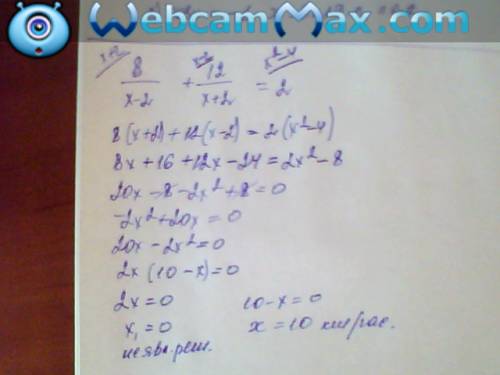 WebcamMax.com
x+2 x-2 x²-4
8/(x-2) + 12/(x+2) = 2
8(x+2)+12(x-2)=2(x²-4)
8x+16+12x-24=2x²-8
20x-8-2x²+8=0
-2x²+20x=0
20x-2x²=0
2x(10-x)=0
2x=0 10-x=0
x₁=0 x=10 км/час.
не явл. реш.